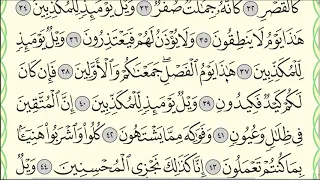 كَٱلْقَصْرِ ٣٢ كَأَنَّهُۥ جِمَٰلَتٌ صُفْرٌ ٣٣ وَيْلٌ يَوْمَئِذٍ لِّلْمُكَذِّبِينَ ٣٤
هَٰذَا يَوْمُ لَا يَنطِقُونَ ٣٥ وَلَا يُؤْذَنُ لَهُمْ فَيَعْتَذِرُونَ ٣٦ وَيْلٌ يَوْمَئِذٍ
لِّلْمُكَذِّبِينَ ٣٧ هَٰذَا يَوْمُ ٱلْفَصْلِ جَمَعْنَٰكُمْ وَٱلْأَوَّلِينَ ٣٨ فَإِن كَانَ
لَكُمْ كَيْدٌ فَكِيدُونِ ٣٩ وَيْلٌ يَوْمَئِذٍ لِّلْمُكَذِّبِينَ ٤٠ إِنَّ ٱلْمُتَّقِينَ
فِى ظِلَٰلٍ وَعُيُونٍ ٤١ وَفَوَٰكِهَ مِمَّا يَشْتَهُونَ ٤٢ كُلُوا۟ وَٱشْرَبُوا۟ هَنِيٓـًٔۢا
بِمَا كُنتُمْ تَعْمَلُونَ ٤٣ إِنَّا كَذَٰلِكَ نَجْزِى ٱلْمُحْسِنِينَ ٤٤ وَيْلٌ